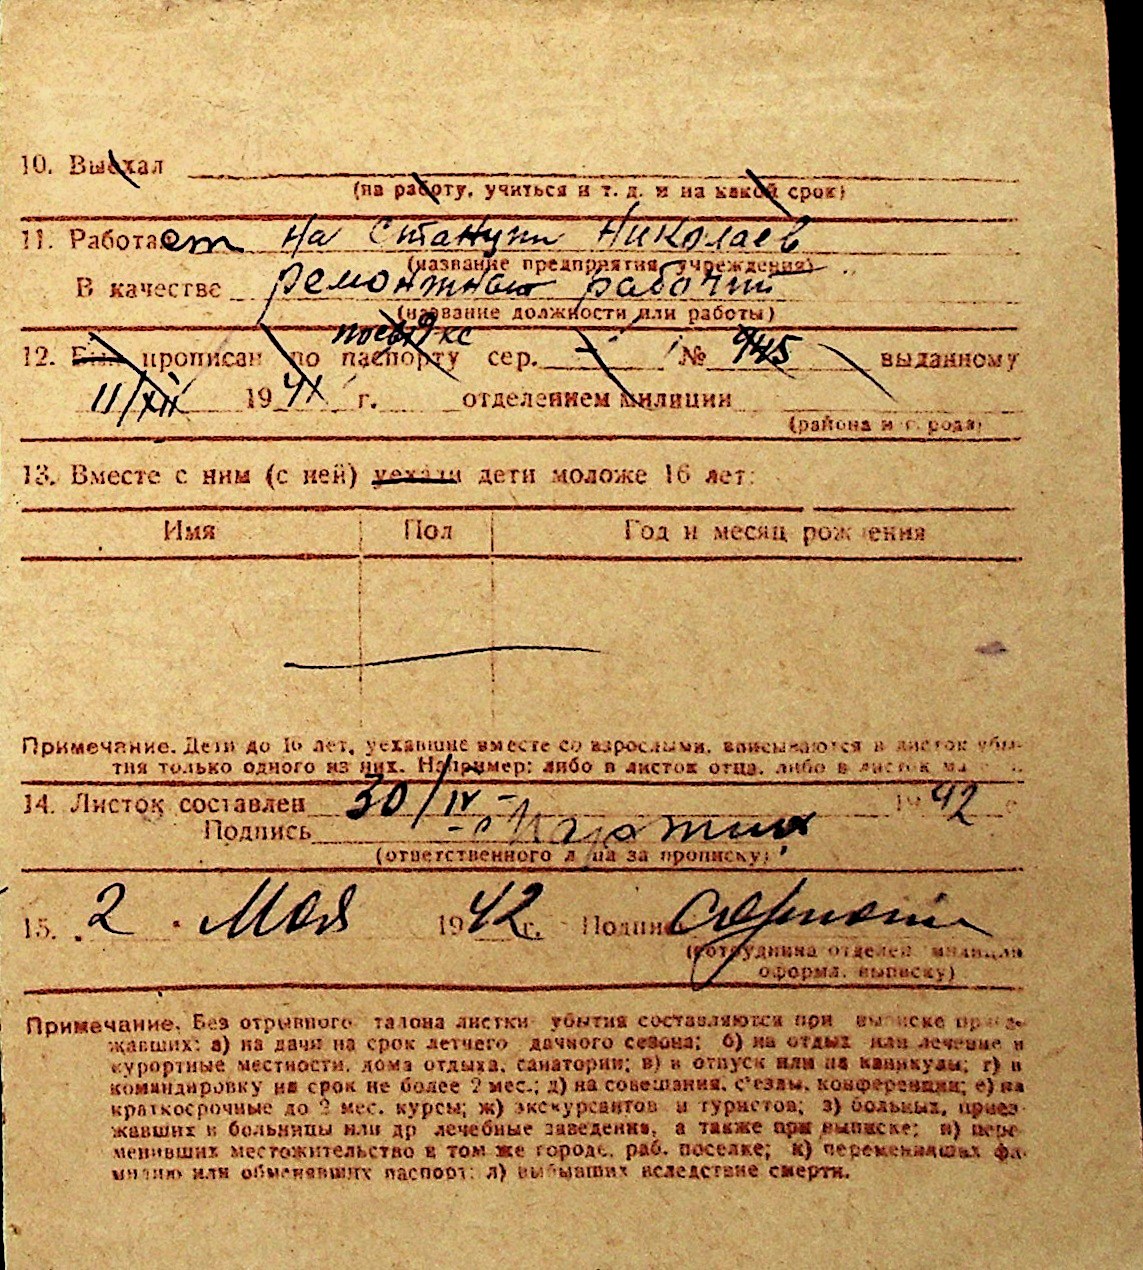 10. Выехал
(на работу, учиться и т. д. и на какой срок)
11. Работает на Станции Николаев
(название предприятия, учреждения)
В качестве ремонтный рабочий
(название должности или работы)
12. Был прописан по паспорту сер. — № 945 выданному
11/XII 1941 г. отделением милиции
(района и города)
13. Вместе с ним (с ней) уехали дети моложе 16 лет:
Имя Пол Год и месяц рождения
Примечание. Дети до 16 лет, уехавшие вместе со взрослыми, вписываются в листок убы-
тия только одного из них. Например: либо в листок отца, либо в листок
14. Листок составлен 30/IV - 1942 г
Подпись
(ответственного лица за прописку)
15. 2 " Мая 1942 г. Подпись
(сотрудника отделен. милиции
оформл. выписку)
Примечание. Без отрывного талона листки убытия составляются при выписке приез-
жавших: а) на дачи на срок летчего дачного сезона; б) на отдых или лечение в
курортные местности, дома отдыха, санатории; в) в отпуск или на каникулы; г) в
командировку на срок не более 2 мес.; д) на совещания, с'езды, конференции; е) на
краткосрочные до 2 мес. курсы; ж) экскурсантов и туристов; з) больных, приез-
жавших в больницы или др лечебные заведения, а также при выписке; и) пере-
менивших местожительство в том же городе, раб. поселке; к) переменивших фа-
милию или обменявших паспорт; л) выбывших вследствие смерти.